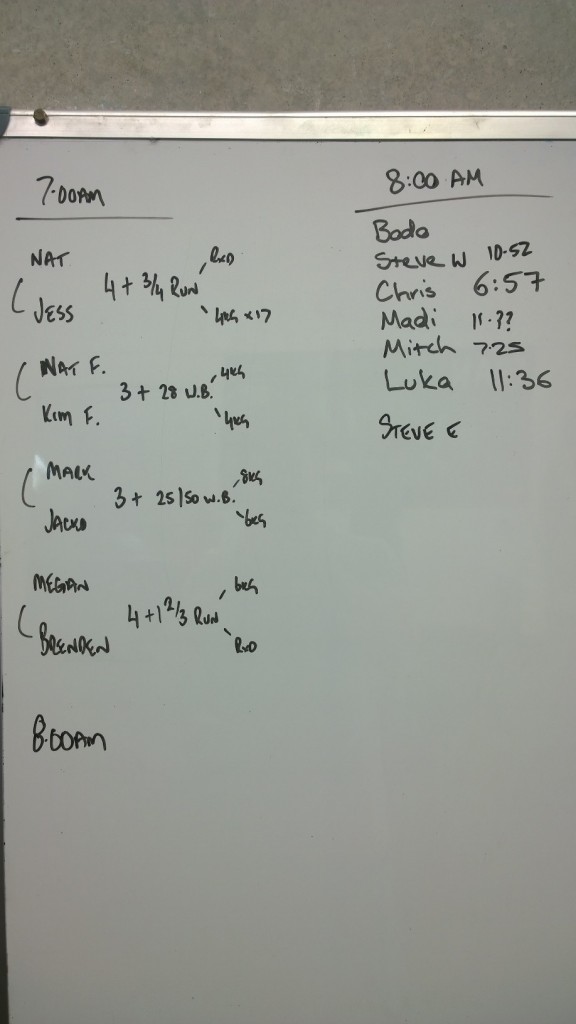 7:00AM
NAT
JESS
4 + 3/4 RUN
RxD
4KG x 17
NAT F.
KIM F.
3 + 28 W.B.
4KG
4KG
MARK
JACKO
3 + 25/50 W.B.
8KG
6KG
MEGAN
BRENDEN
4 + 1 2/3 RUN
6KG
RxD
8:00AM
8:00 AM
Bodo
Steve W 10-52
Chris 6:57
Madi 11.??
Mitch 7:25
Luka 11:36
STEVE E